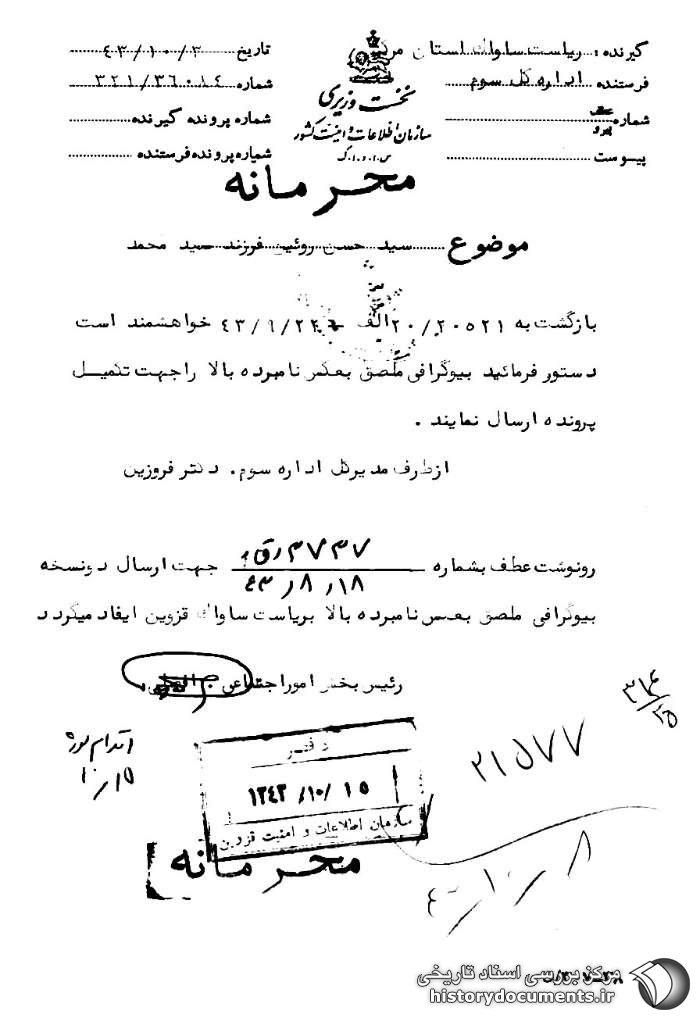 گیرنده : ریاست ساواک استان مرکز
فرستنده اداره کل سوم
شماره
پیوست
نخست وزیری
سازمان اطلاعات و امنیت کشور
س.ا.و.ا.ک
تاریخ ۴۳/۱۰/۳
شماره ۳۲۱/۳۶۰۸۴
شماره پرونده گیرنده
شماره پرونده فرستنده
محرمانه
موضوع سید حسن روئین فرزند سید محمد
بازگشت به ۲۰/۲۰۵۲۱ الف خواهشمند است
دستور فرمائید بیوگرافی ملصق بعکس نامبرده بالا را جهت تکمیل
پرونده ارسال نمایند .
از طرف مدیرکل اداره سوم. دکتر فروزین
رونوشت عطف بشماره ۳۷۳۷ جهت ارسال دو نسخه
۴۳/۸/۱۸
بیوگرافی ملصق بعکس نامبرده بالا بریاست ساواک قزوین ایفاد میگردد
رئیس بخش امور اجتماعی
۳۱۴
۲۵
۲۱۵۷۷
اقدام شود
۱۰/۱۵
دفتر
۱۳۴۳/۱۰/۱۵
سازمان اطلاعات و امنیت قزوین
محرمانه
مرکز بررسی اسناد تاریخی
historydocuments.ir